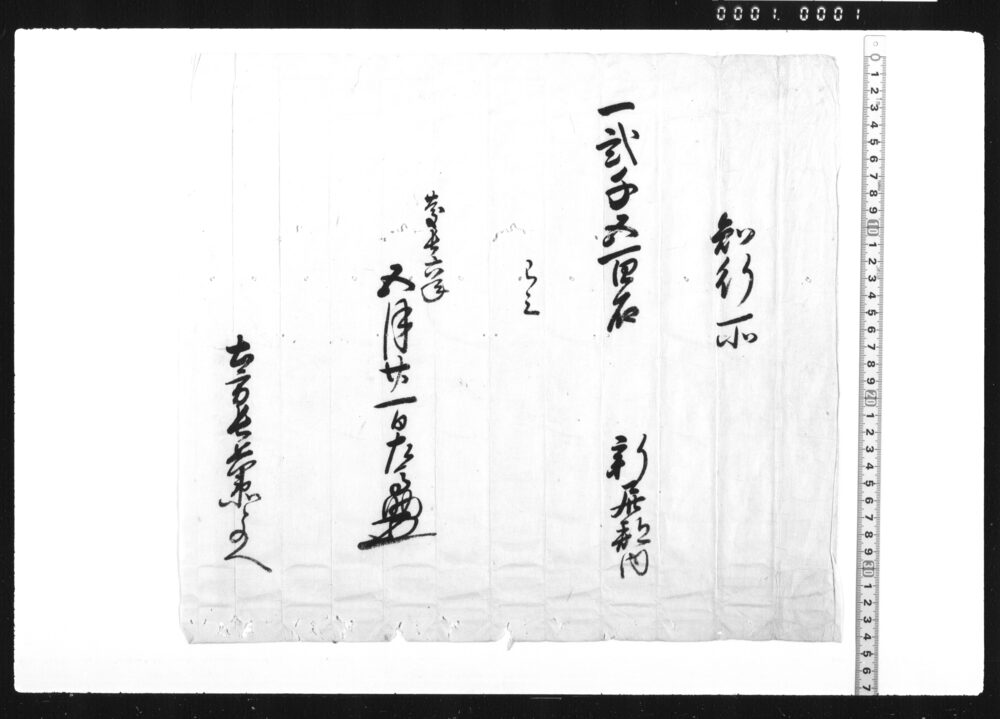 0001.0001
知行所
一弐千五百石 新居郡内
已上
慶長六年
五月廿一日 左馬
土方長兵衛とのへ
0 1 2 3 4 5 6 7 8 9 10 1 2 3 4 5 6 7 8 9 20 1 2 3 4 5 6 7 8 9 30 1 2 3 4 5 6 7